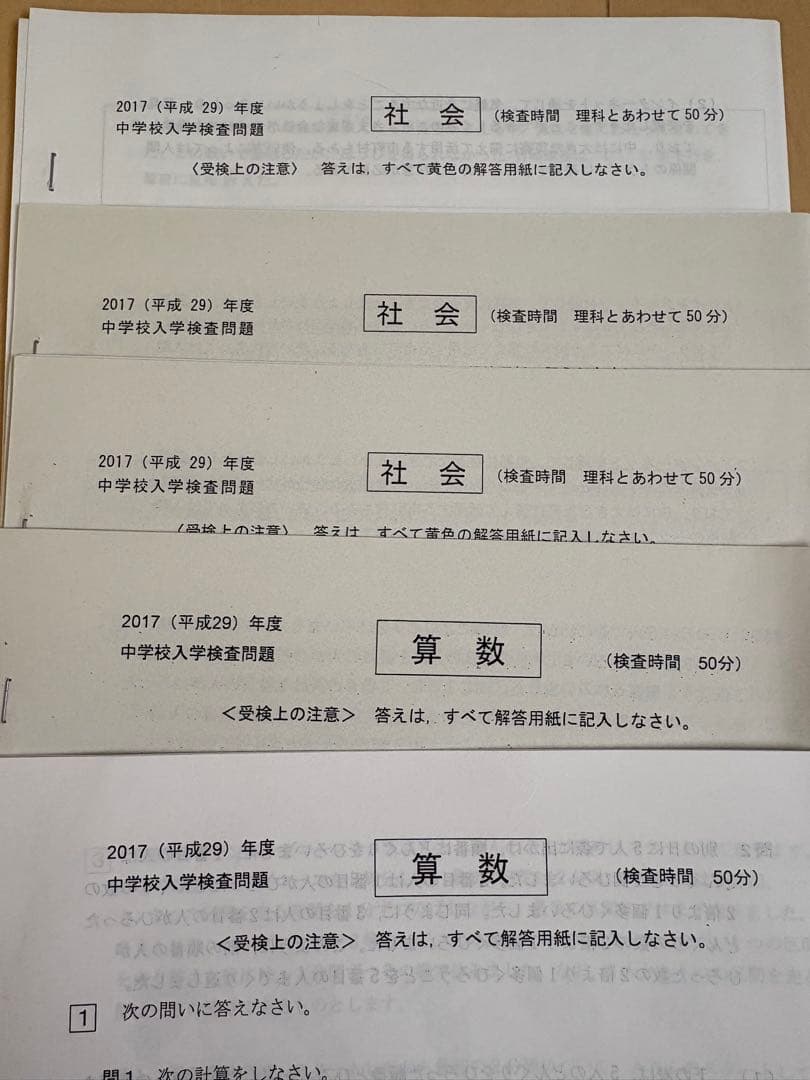 2017（平成 29）年度
中学校入学検査問題
社 会
（検査時間 理科とあわせて50分）
〈受検上の注意〉 答えは，すべて黄色の解答用紙に記入しなさい。
2017（平成 29）年度
中学校入学検査問題
社 会
（検査時間 理科とあわせて50分）
2017（平成 29）年度
中学校入学検査問題
社 会
（検査時間 理科とあわせて50分）
〈受検上の注意〉 答えは，すべて黄色の解答用紙に記入しなさい。
2017（平成29）年度
中学校入学検査問題
算 数
（検査時間 50分）
＜受検上の注意＞ 答えは，すべて解答用紙に記入しなさい。
2017（平成29）年度
中学校入学検査問題
算 数
（検査時間 50分）
＜受検上の注意＞ 答えは，すべて解答用紙に記入しなさい。
1 次の問いに答えなさい。
問1 次の計算をしなさい。